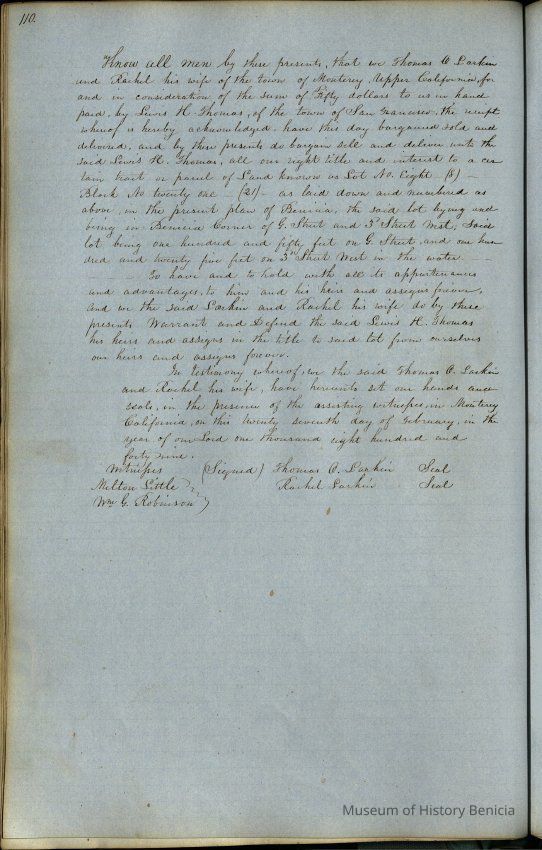 110.
Know all men by these presents, that we Thomas O. Larkin
and Rachel his wife of the town of Monterey, Upper California, for
and in consideration of the sum of Fifty dollars to us in hand
paid, by Lewis H. Thomas, of the town of San Francisco, the receipt
whereof is hereby acknowledged, have this day bargained sold and
delivered, and by these presents do bargain sell and deliver unto the
said Lewis H. Thomas, all our right title and interest to a cer
tain tract or parcel of Land known as Lot No. Eight - (8) -
Block No twenty one - (21) - as laid down and numbered as
above, in the present plan of Benicia, the said lot lying and
being in Benicia Corner of G. Street and 3d Street West, Said
lot being one hundred and fifty feet on G. Street, and one hun
dred and twenty five feet on 3rd Street West in the water.
To have and to hold with all its appurtenances
and advantages, to him and his heirs and assigns forever,
And we the said Larkin and Rachel his wife do by these
presents Warrant and Defend the said Lewis H. Thomas
his heirs and assigns in the title to said lot from ourselves
our heirs and assigns forever.
In testimony whereof, we the said Thomas O. Larkin
and Rachel his wife, have hereunto set our hands and
seals, in the presence of the assisting witnesses, in Monterey
California, on this twenty seventh day of February, in the
year of our Lord one thousand eight hundred and
forty nine.
Witnesses (Signed) Thomas O. Larkin Seal
Milton Little Rachel Larkin Seal
Wm G. Robinson
Museum of History Benicia